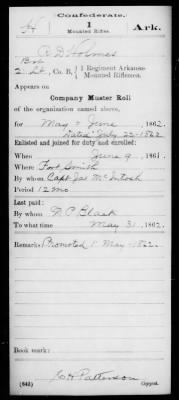 Confederate.
H 1 Ark.
Mounted Rifles.
R D Holmes
Bvt
2 Lt, Co. B, 1 Regiment Arkansas
Mounted Riflemen.
Appears on
Company Muster Roll
of the organization named above,
for May & June, 1862.
Dated July 22-1862
Enlisted and joined for duty and enrolled:
When June 9, 1861.
Where Fort Smith
By whom Capt Jas McIntosh
Period 12 mo
Last paid:
By whom N. P. Black
To what time May 31, 1862.
Remarks: Promoted 1 May-1862.
Book mark:
Patterson
(642) Copyist.